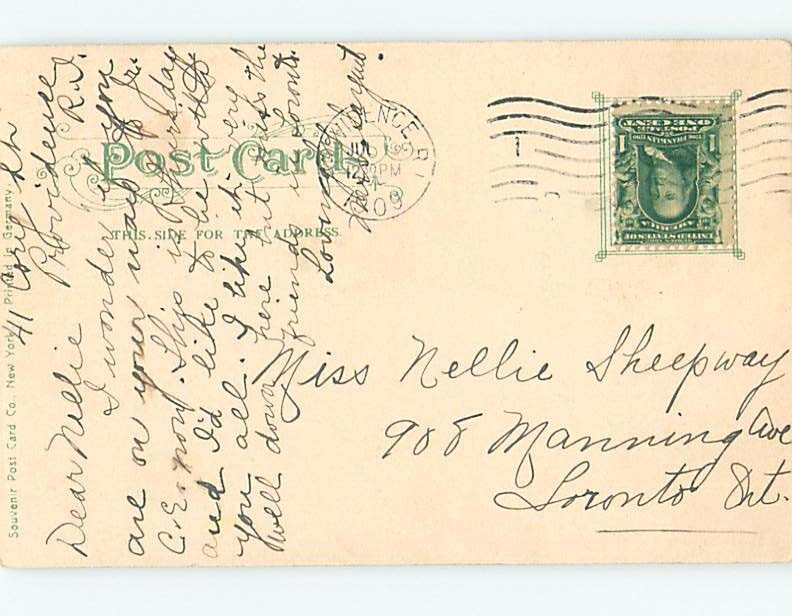 Post Card
THIS SIDE FOR THE ADDRESS
Souvenir Post Card Co., New York Printed in Germany
PROVIDENCE R.I.
PM
09
POSTAGE
ONE CENT
1 1
FRANKLIN
UNITED STATES OF AMERICA
Miss Nellie Sheepway
908 Manning Ave
Toronto Ont.
41 Cory
Providence
R.I.
Dear Nellie
I wonder if you
are on your way
C.E. now. This is Thurs day
and I'd like to be with
you all. I like it very
well down here but miss the
friends in Toronto.